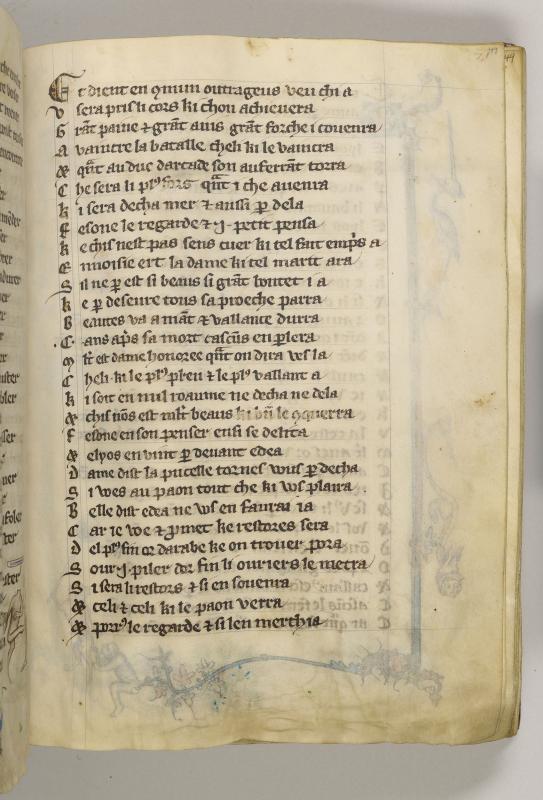 Et dient en qmun outrageus veu chi a
V sera pris li cors ki chou achievera
G rāt paine ⁊ grāt auis grāt forche i couenra
A vaintre la bataille cheli ki le vaintra
⁊ qāt au duc darcade son auferrāt torra
C he sera li plꝰ fors qāt i che auenra
K i sera decha mer ⁊ aussi ꝑ dela
F esone le regarde ⁊ .j. petit pensa
K e chis nest pas sens cuer ki tel fait empͥs a
E nuoisie ert la dame ki tel marit ara
S il ne ꝑ est si beaus si grāt bontet i a
K e ꝑ deseure tous sa proeche parra
B eautes va a māt ⁊ vallance durra
.C. ans apͤs sa mort cascūs en ꝑlera
M lt est dame honoree qāt on dira vꝯ la
C heli ki le plꝰ preu ⁊ le plꝰ vallant a
K i soit en nul roaume ne decha ne dela
⁊ chis nōs est mlt beaus ki bn̄ le ꝯquerra
F esone en son penser ensi se delita
⁊ elyos en vint ꝑ deuant edea
D ame dist la pucelle tornes wus ꝑ decha
S i wes au paon tout che ki vꝯ plaira
B elle dist edea ne vꝯ en faurai ia
C ar ie voe ⁊ ꝓmet ke restores sera
D el plꝰ fin or darabe ke on trouer pora
S our .j. piler dor fin li ouriers le metra
S i sera li restors ⁊ si en souenra
⁊ celi ⁊ celi ki le paon verra
⁊ porrꝰ le regarde ⁊ si len merchia